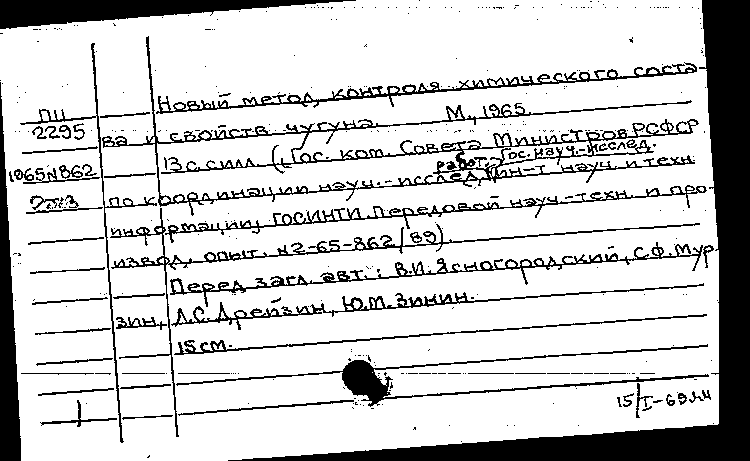 Новый метод контроля химического соста-
ПШ
2295
ва и свойств чугуна. М., 1965.
1965 N 862
13 с. с илл. (Гос. ком. Совета Министров РСФСР
по координации науч.-исслед. работ. Гос. науч.-исслед. ин-т науч. и техн.
информации, ГОСИНТИ. Передовой науч.-техн. и про-
извод. опыт. N2-65-862/89).
Перед загл. авт.: В.И. Ясногородский, С.Ф. Мур-
зин, Л.С. Дрейзин, Ю.М. Зинин.
15 см.
15/I-69